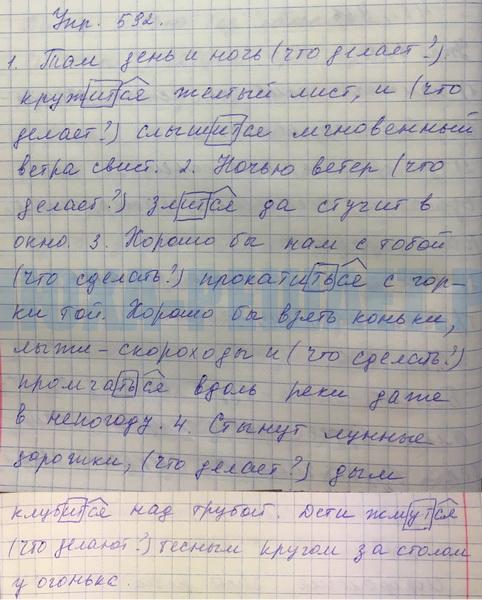 Упр. 592.
1. Там день и ночь (что делает?)
кружится желтый лист, и (что
делает?) слышится мгновенный
ветра свист. 2. Ночью ветер (что
делает?) злится да стучит в
окно. 3. Хорошо бы нам с тобой
(что сделать?) прокатиться с гор-
ки той. Хорошо бы взять коньки,
лыжи-скороходы и (что сделать?)
промчаться вдоль реки даже
в непогоду. 4. Стынут лунные
дорожки, (что делает?) дым
клубится над трубой. Дети жмутся
(что делают?) тесным кругом за столом
у огонька.